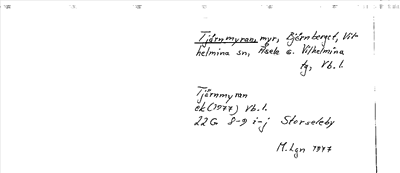 Tjärnmyran, myr, Björnberget, Vil-
helmina sn, Åsele o. Vilhelmina
tg, Vb. l.
Tjärnmyran
ek (1977) Vb. l.
22G 8-9 i-j Storseleby
M. Lgn 1977